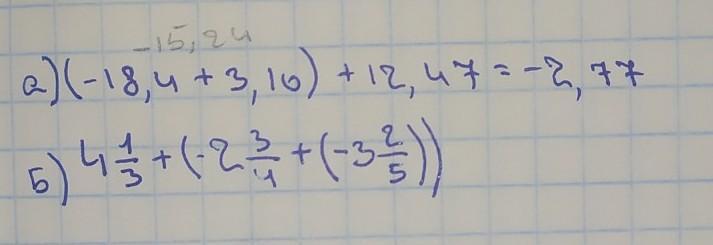 -15,24
а) (-18,4 + 3,16) + 12,47 = -2,77
б) 4 1/3 + (-2 3/4 + (-3 2/5))